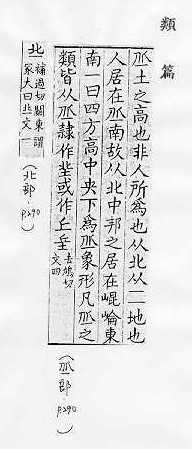 類篇
丠土之高也非人所為也从北从一一地也
人居在丠南故从北中邦之居在崐崘東
南一曰四方高中央下為丠象形凡丠之
類皆从丠隷作丘或作 去鳩切
文四
(丠部·p.290)
補過切關東謂
冢大曰 文一
(北部·p.290)